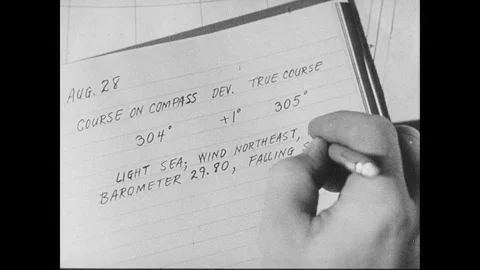 AUG. 28
COURSE ON COMPASS DEV. TRUE COURSE
304° +1° 305°
LIGHT SEA; WIND NORTHEAST,
BAROMETER 29.80, FALLING S